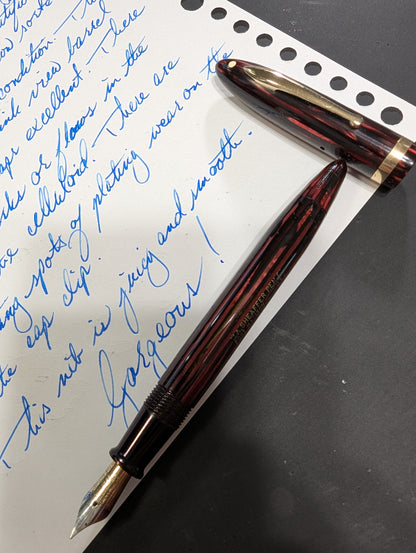 condition. Th
ink view barrel
excellent. There
ks or flaws in the
celluloid. There are
spots of plating wear on the
the cap clip.
This nib is juicy and smooth.
Gorgeous!
SHEAFFER PEN